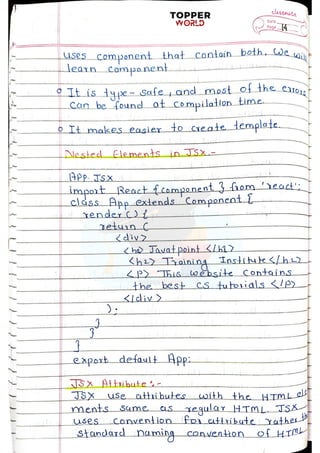 TOPPER
WORLD
classmate
Date
Page 14
uses component that contain both. We will
learn component
It is type-safe, and most of the errors
can be found at compilation time.
It makes easier to create template.
Nested Elements in JSX:-
APP. JSX
import React {component} from 'react';
class App extends Component {
render() {
return (
<div>
<h1> Javatpoint </h1>
<h2> Training Institute </h2>
<p> This website contains
the best CS tutorials </p>
</div>
);
}
}
}
export default App;
JSX Attribute:-
JSX use attributes with the HTML ele-
ments same as regular HTML. JSX
uses convention for attribute rather th
standard naming convention of HTML